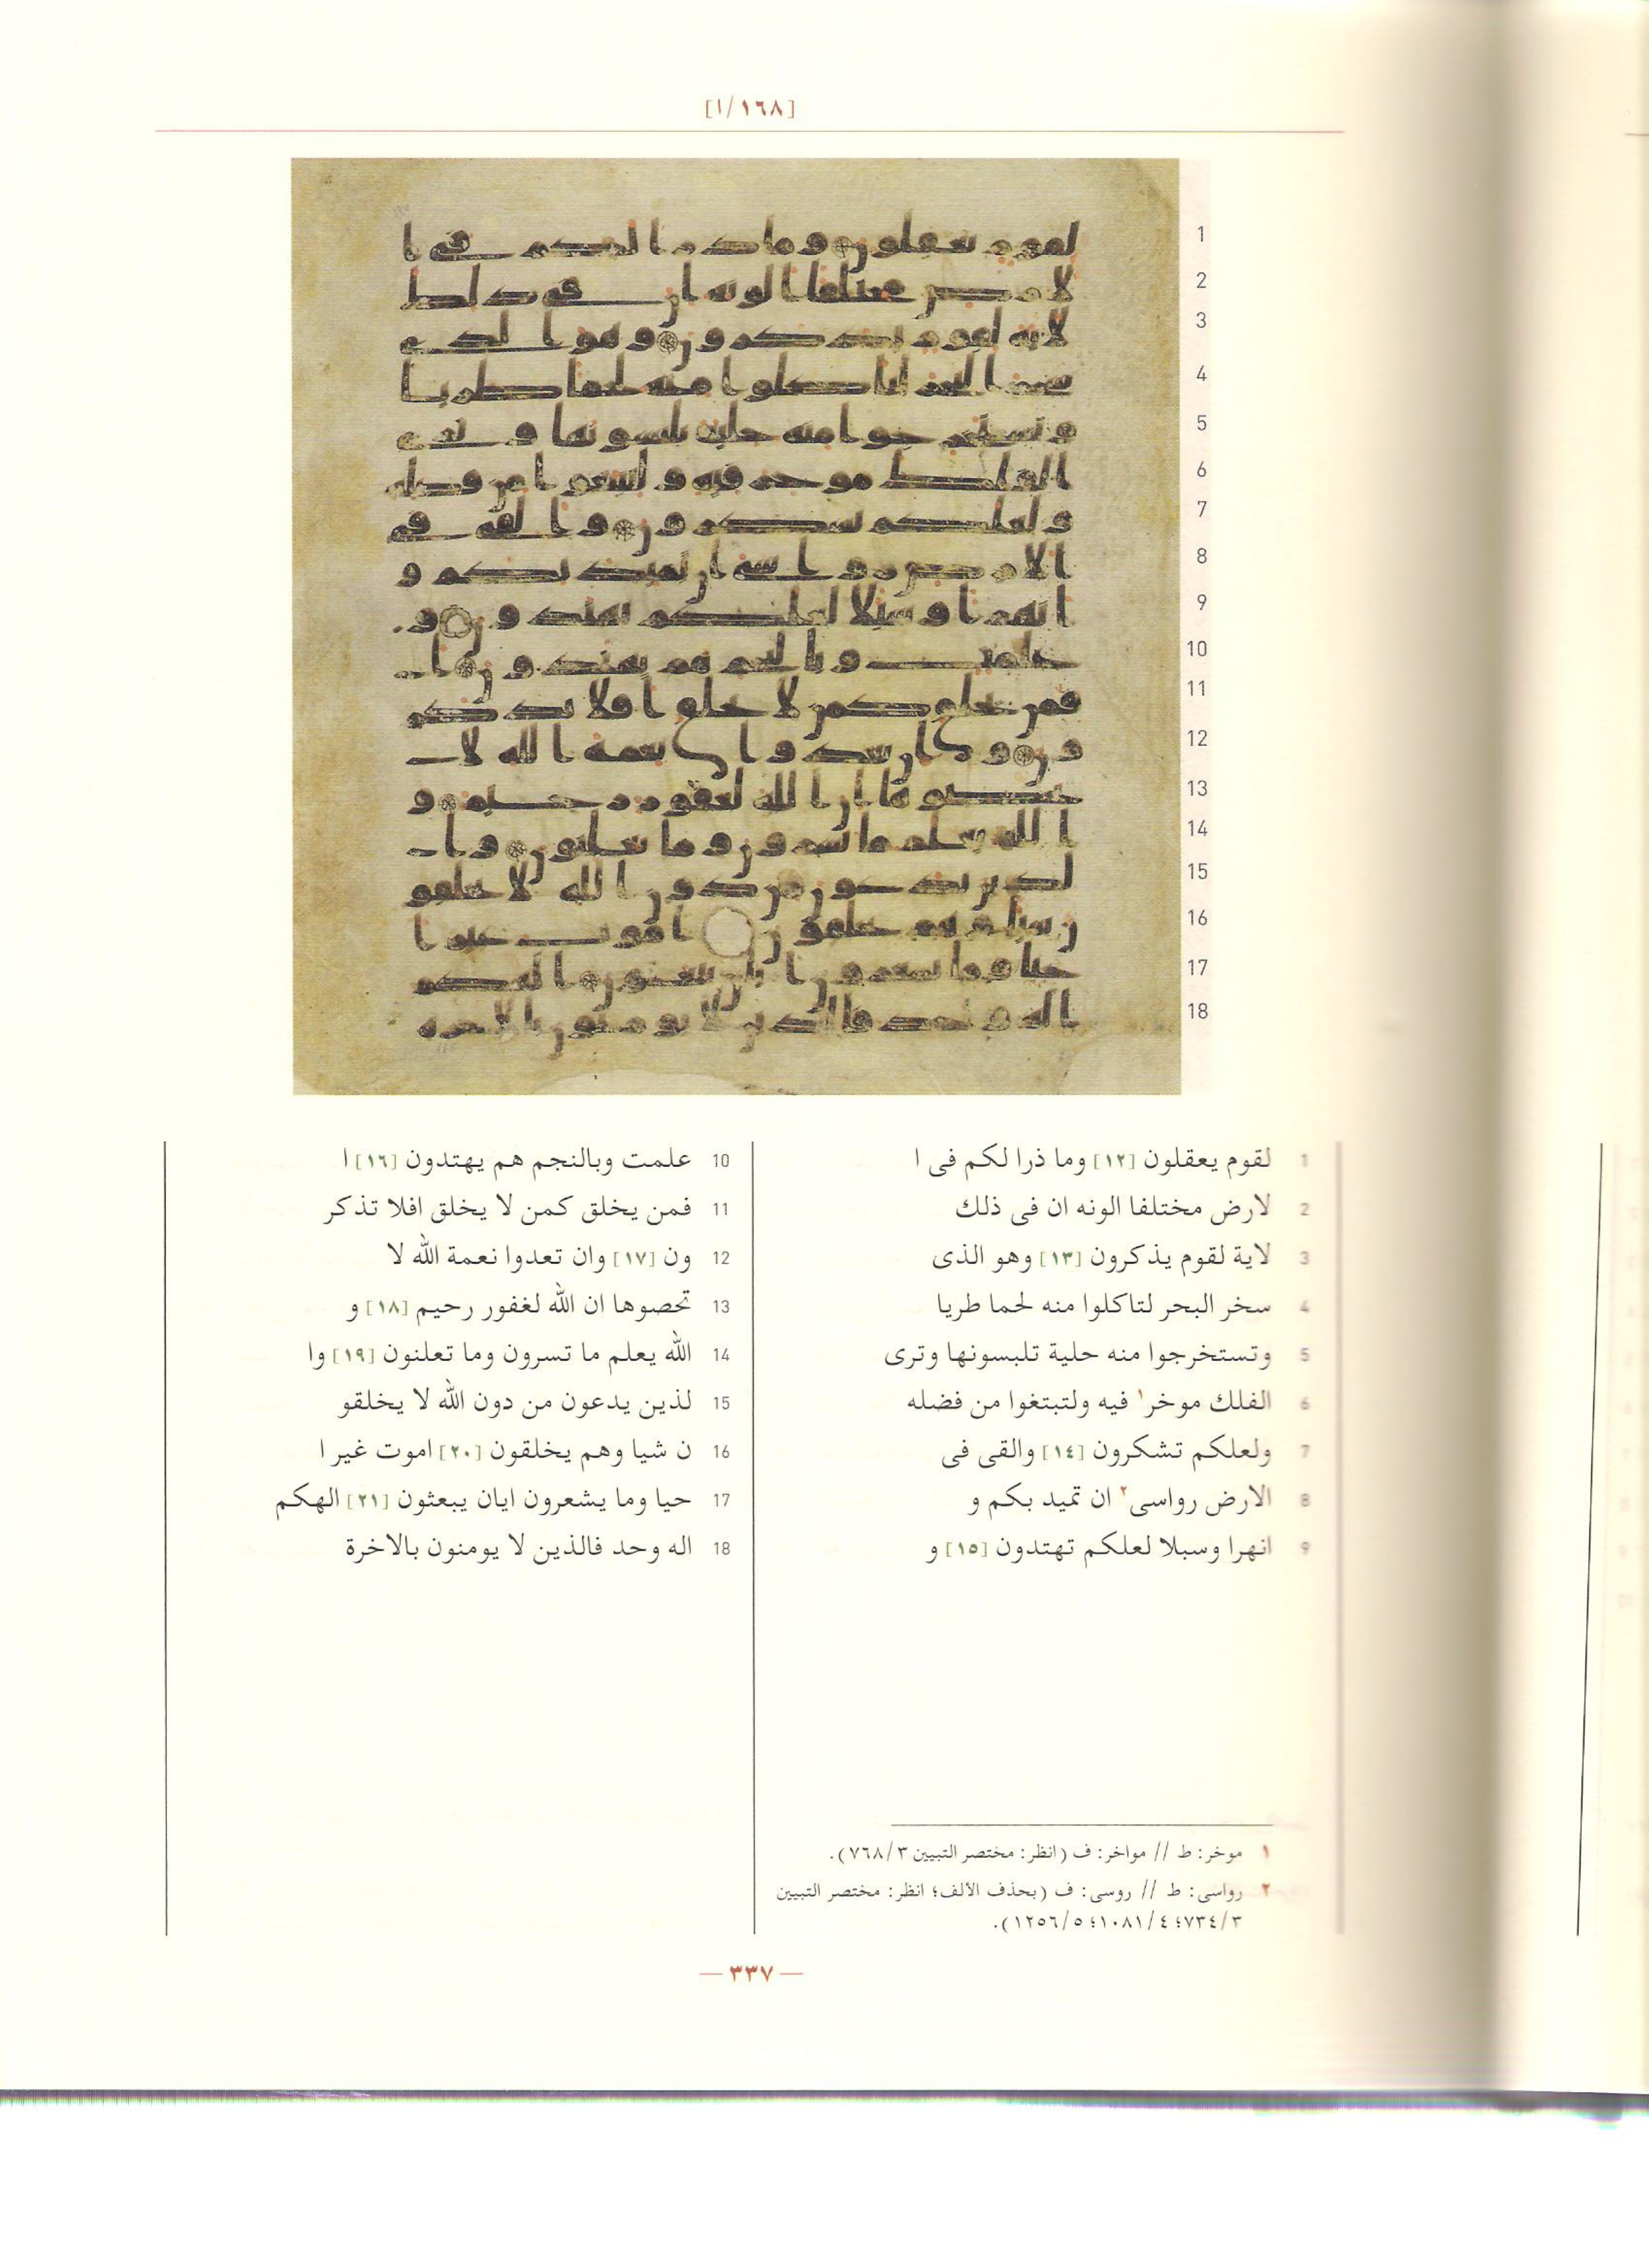 [١/١٦٨]
1
2
3
4
5
6
7
8
9
10
11
12
13
14
15
16
17
18
1 لقوم يعقلون [١٢] وما ذرا لكم فى ا
2 لارض مختلفا الونه ان فى ذلك
3 لاية لقوم يذكرون [١٣] وهو الذى
4 سخر البحر لتاكلوا منه لحما طريا
5 وتستخرجوا منه حلية تلبسونها وترى
6 الفلك موخر١ فيه ولتبتغوا من فضله
7 ولعلكم تشكرون [١٤] والقى فى
8 الارض رواسى٢ ان تميد بكم و
9 انهرا وسبلا لعلكم تهتدون [١٥] و
10 علمت وبالنجم هم يهتدون [١٦] ا
11 فمن يخلق كمن لا يخلق افلا تذكر
12 ون [١٧] وان تعدوا نعمة الله لا
13 تحصوها ان الله لغفور رحيم [١٨] و
14 الله يعلم ما تسرون وما تعلنون [١٩] وا
15 لذين يدعون من دون الله لا يخلقو
16 ن شيا وهم يخلقون [٢٠] اموت غير ا
17 حيا وما يشعرون ايان يبعثون [٢١] الهكم
18 اله وحد فالذين لا يومنون بالاخرة
١ موخر: ط // مواخر: ف (انظر: مختصر التبيين ٣/٧٦٨).
٢ رواسى: ط // روسى: ف (بحذف الألف؛ انظر: مختصر التبيين
٣/٧٣٤؛ ٤/١٠٨١؛ ٥/١٢٥٦).
— ٣٣٧ —